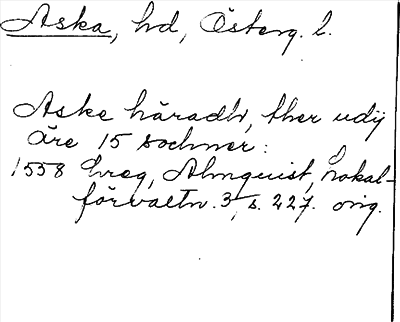 Aska, hd, Österg. l.
Aske häradh, ther udij
äre 15 sochner:
1558 breg, Almquist, Lokal-
förvaltn. 3, s. 227. orig.